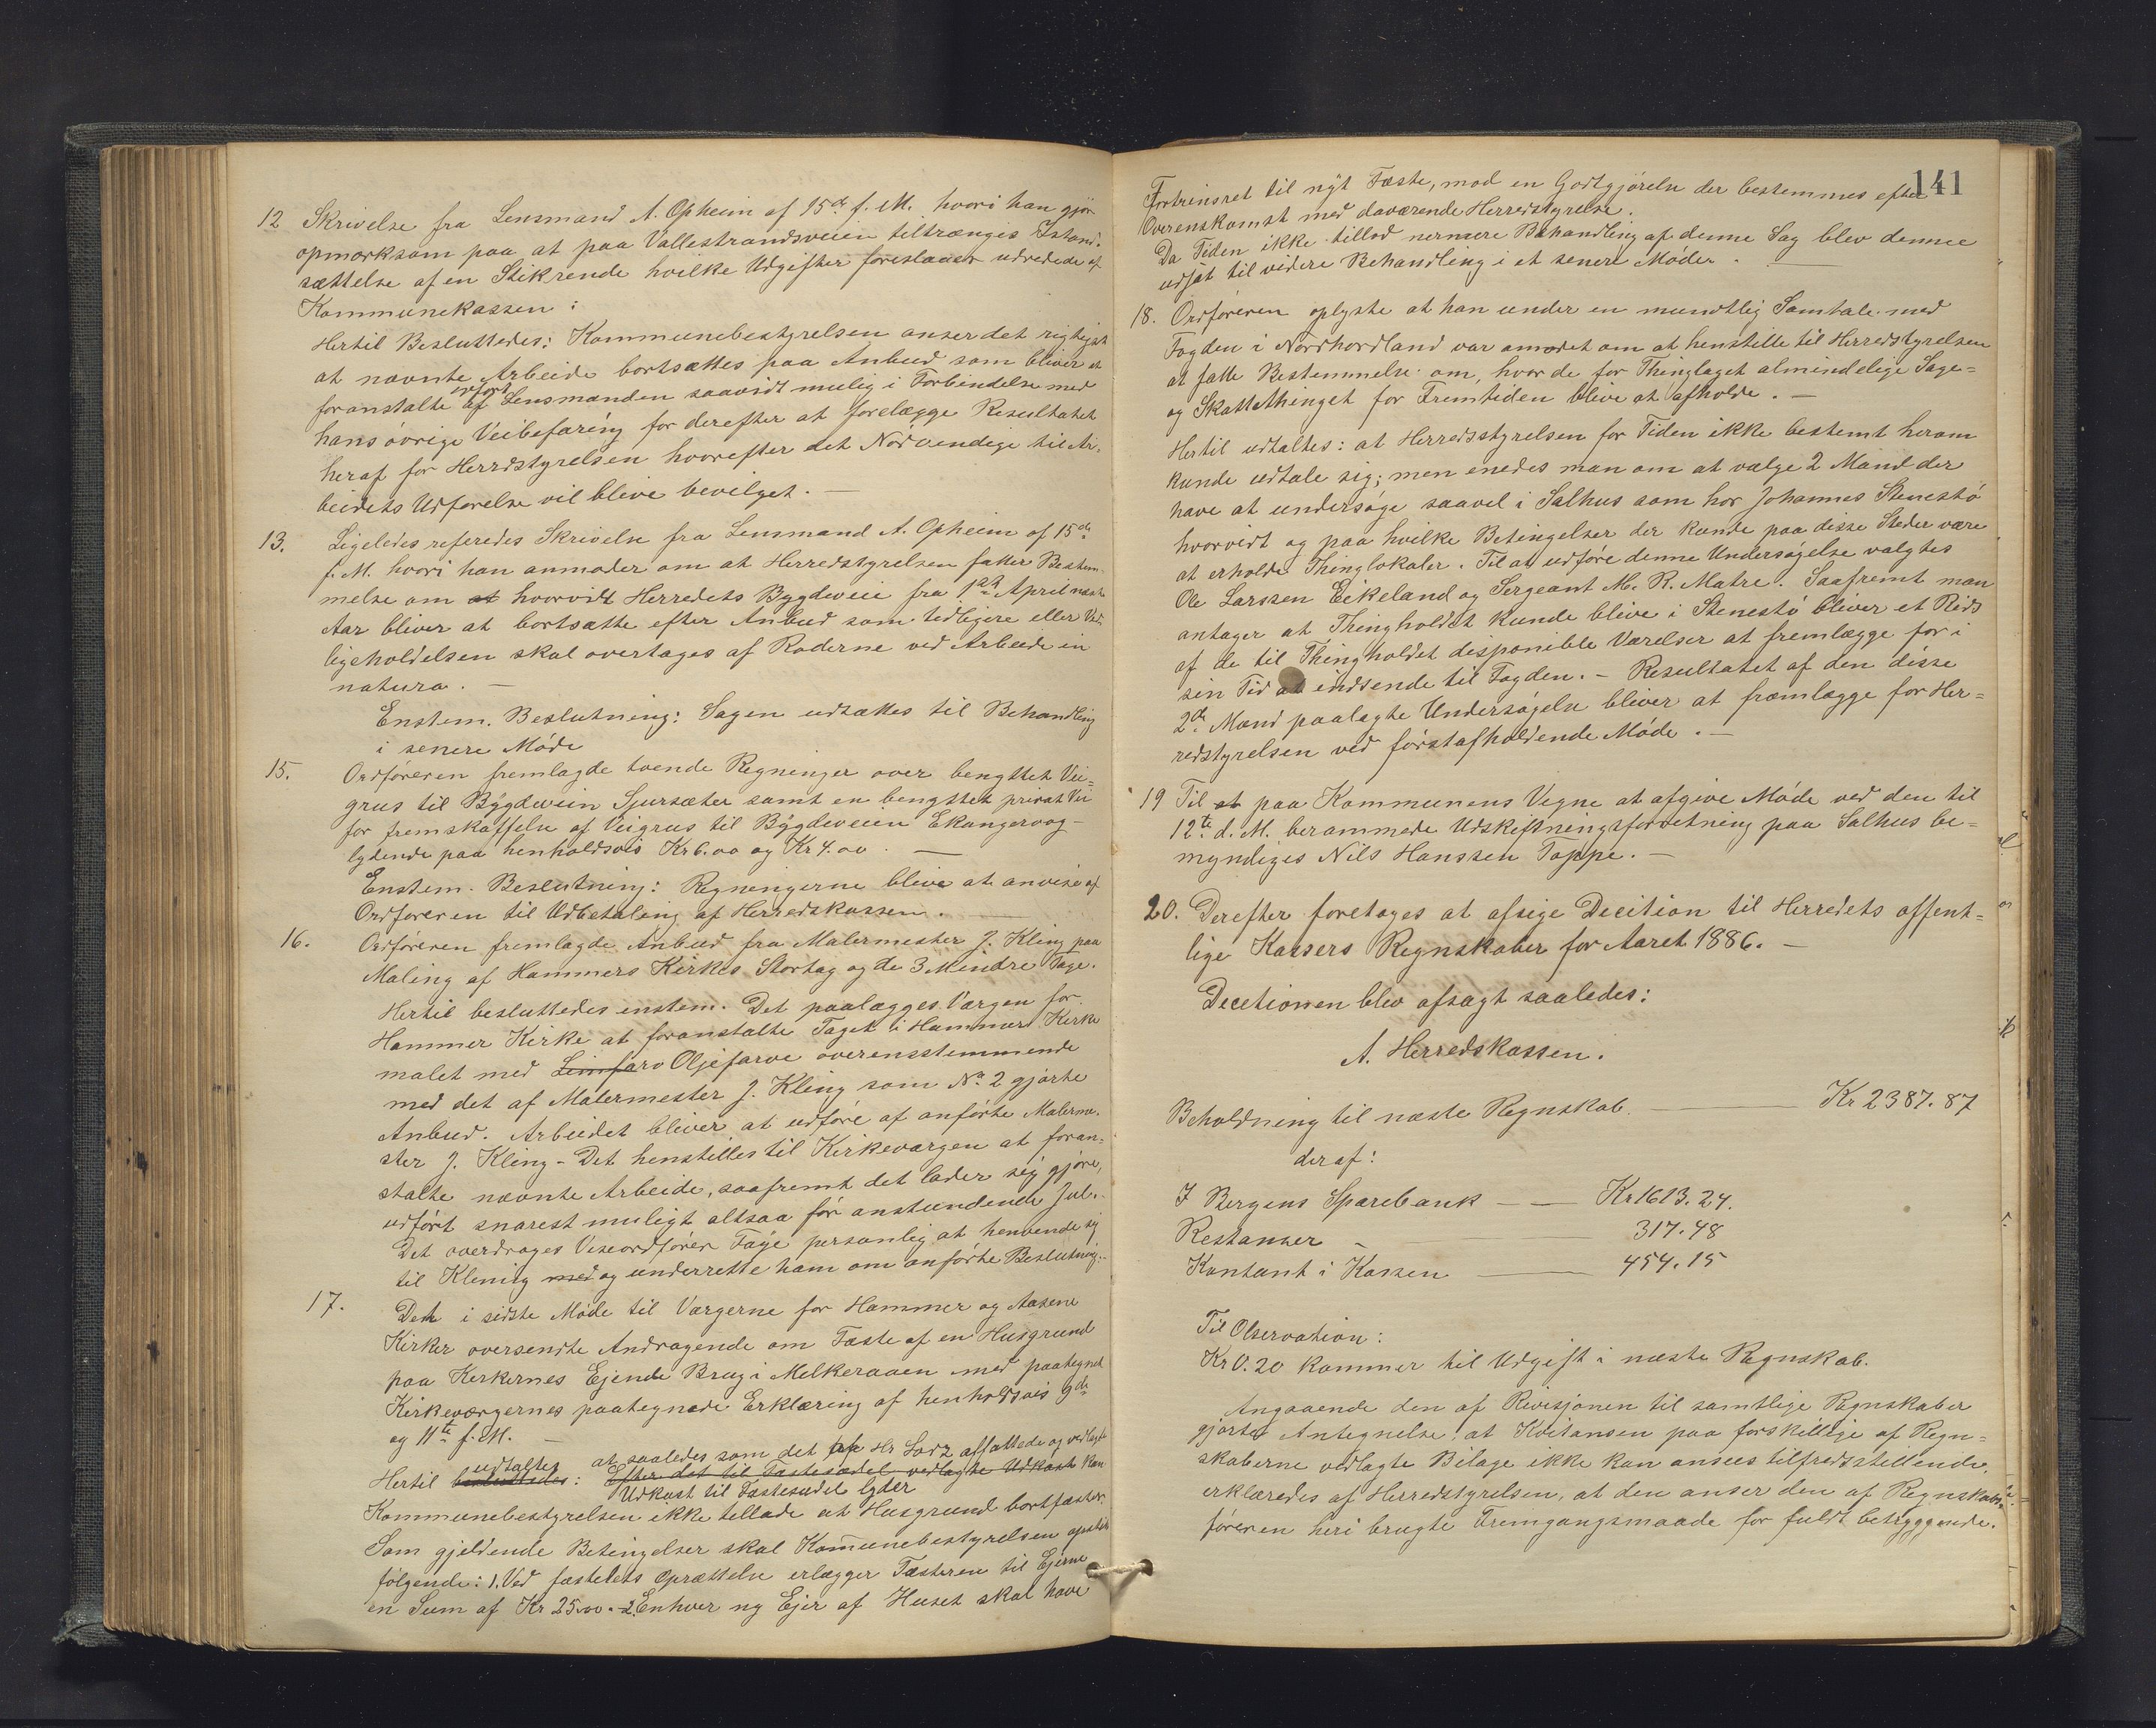 12 Skrivelse fra Lensmand A. Opheim af 15de f. M. hvori han gjør
opmærksom paa at paa Vallestrandsveien tiltrænges Istand-
sættelse af en Stikrende hvilke Udgifter foreslaaes udredede af
Kommunekassen:
Hertil Besluttedes: Kommunebestyrelsen anser det rigtigst
at nævnte Arbeide bortsættes paa Anbud som bliver at
foranstalte udført af Lensmanden saavidt mulig i Forbindelse med
hans øvrige Veibefaring for derefter at forelægge Resultatet
heraf for Herredstyrelsen hvorefter det Nødvendige til Ar-
beidets Udførelse vil blive bevilget. —
13. Ligeledes referedes Skrivelse fra Lensmand A. Opheim af 15de
f. M. hvori han anmoder om at Herredstyrelsen fatter Bestem-
melse om at hvorvidt Herredets Bygdeveie fra 1ste April næste
Aar bliver at bortsætte efter Anbud som tidligere eller Ved-
ligeholdelsen skal overtages af Roderne ved Arbeide in
natura. —
Enstem. Beslutning: Sagen udsættes til Behandling
i senere Møde
15. Ordføreren fremlagde tvende Regninger over benyttet Vei-
grus til Bygdeveien Sjursæter samt en benyttet privat Vei
for fremskaffeln af Veigrus til Bygdeveien Ekangervaag -
lydende paa henholdsvis Kr 6.00 og Kr 4.00. —
Enstem. Beslutning: Regningerne bleve at anvise af
Ordføreren til Udbetaling af Herredskassen. —
16. Ordføreren fremlagde Anbud fra Malermester J. Kling paa
Maling af Hammers Kirkes Stortag og de 3 Mindre Tage.
Hertil besluttedes enstem. Det paalægges Værgen for
Hammer Kirke at foranstalte Taget i Hammer Kirke
malet med Limfarv Oljefarve overensstemmende
med det af Malermester J. Kling som No 2 gjorte
Anbud. Arbeidet bliver at udføre af anførte Malerme-
ster J. Kling - Det henstilles til Kirkeværgen at foran-
stalte nævnte Arbeide, saafremt det lader sig gjøre,
udført snarest muligt altsaa før anstundende Jul.
Det overdrages Viseordfører Faye personlig at henvende sig
til Klening med og underrette ham om anførte Beslutning. -
17. Det i sidste Møde til Værgerne for Hammer og Aasene
Kirker oversendte Andragende om Fæste af en Husgrund
paa Kirkernes Ejende Brug i Melkeraaen med paategnet
Kirkeværgernes paategnede Erklæring af henholdsvis 9de
og 11te f. M. —
udtaltes at saaledes som det af Hr Larz affattede og vedlagte
Hertil besluttedes: Efter det til Fæstesedel vedlagte Udkast kan
Udkast til Fæstesedel lyder
Kommunebestyrelsen ikke tillade at Husgrund bortfæster.
Som gjeldende Betingelser skal Komunebestyrelsen opstille
følgende: 1. Ved fæstelets Oprættelse erlægger Fæsteren til Ejerne
en Sum af Kr 25.00. - 2. Enhver ny Ejer af Huset skal have
141
Fortrinsret til nyt Fæste, mod en Godtgjøreln der bestemmes efter
Overenskomst med daværende Herredstyrelse.
Da Tiden ikke tillod nermere Behandling af denne Sag blev denne
udsat til videre Behandling i et senere Møde. —
18. Ordføreren oplyste at han under en mundtlig Samtale med
Fogden i Nordhordland var anmodet om at henstille til Herredstyrelsen
at fatte Bestemmelse om, hvor de for Thinglaget almindelige Sage=
og Skattethinget for Fremtiden blive at afholde. —
Hertil udtaltes: at Herredsstyrelsen for Tiden ikke bestemt herom
kunde udtale sig; men enedes man om at vælge 2 Mænd der
have at undersøge saavel i Salhus som hos Johannes Stenestø
hvorvidt og paa hvilke Betingelser der kunde paa disse Steder være
at erholde Thinglokaler. Til at udføre denne Undersøgelse valgtes
Ole Larssen Eikeland og Sergeant M. R. Matre. Saafremt man
antager at Thingholdet kunde blive i Stenestø bliver et Rids
af de til Thingholdet disponible Værelser at fremlægge for i
sin Tid at indsende til Fogden. - Resultatet af den disse
2de Mænd paalagte Undersøgeln bliver at fræmlægge for Her=
redstyrelsen ved førstafholdende Møde. —
19 Til at paa Kommunens Vegne at afgive Møde ved den til
12te d. M. berammede Udskiftningsforretning paa Salhus be=
myndiges Nils Hanssen Toppe. —
20. Derefter foretages at afsige Decition til Herredets offent=
lige Kassers Regnskaber for Aaret 1886. —
Decetionen blev afsagt saaledes:
A. Herredskassen.
Beholdning til næste Regnskab. — Kr 2387.87
deraf:
I Bergens Sparebank — Kr 1613.24.
Restanser — 317.48
Kontant i Kassen — 454.15
Til Observation:
Kr 0.20 kommer til Udgift i næste Regnskab.
Angaaende den af Revisjonen til samtlige Regnskaber
gjorte Antegnelse: at Kvitansen paa forskillige af Regn=
skaberne vedlagte Bilage ikke kan ansees tilfredsstillende,
erklæredes af Herredstyrelsen, at den anser den af Regnskabs=
føreren heri brugte Fremgangsmaade for fuldt betryggende.